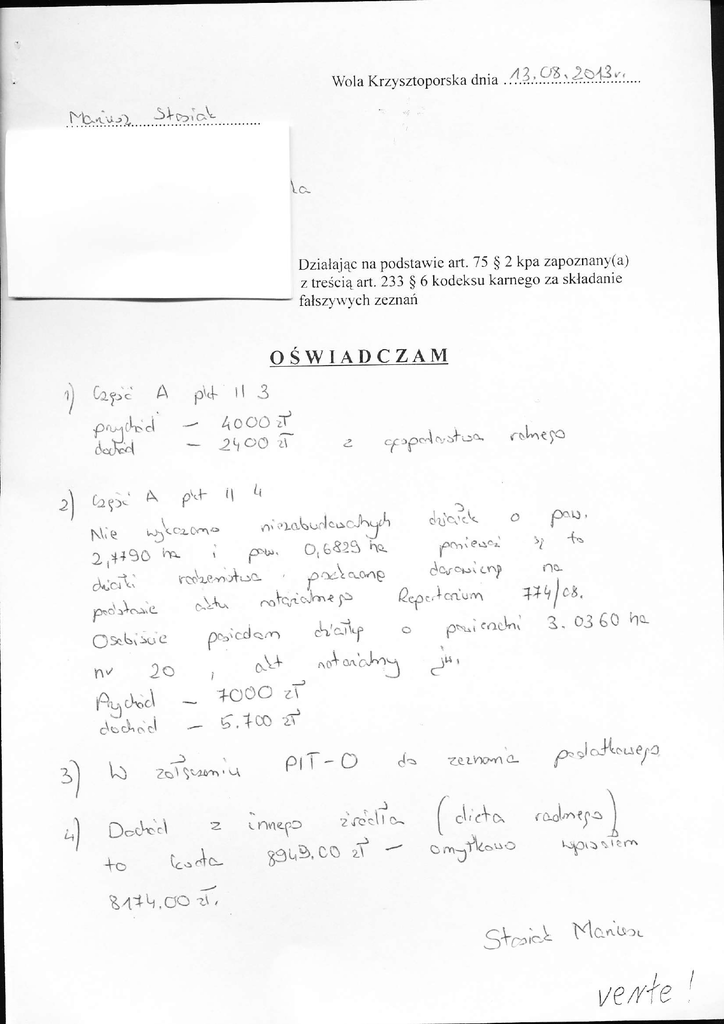 Wola Krzysztoporska dnia 13.08.2013r.
Mariusz Stasiak
la
Działając na podstawie art. 75 § 2 kpa zapoznany(a)
z treścią art. 233 § 6 kodeksu karnego za składanie
fałszywych zeznań
OŚWIADCZAM
1) Część A pkt II 3
przychód – 4000 zł
dochód – 2400 zł z gospodarstwa rolnego
2) Część A pkt II 4
Nie wykazano niezabudowanych działek o pow.
2,7790 ha i pow. 0,6829 ha ponieważ są to
działki rodzeństwa przekazane darowizną na
podstawie aktu notarialnego Repertorium 774/08.
Osobiście posiadam działkę o powierzchni 3.0360 ha
nr 20, akt notarialny jw.
Przychód – 7000 zł
dochód – 5.700 zł
3) W załączeniu PIT-O do zeznania podatkowego
4) Dochód z innego źródła (dieta radnego)
to kwota 8949.00 zł – omyłkowo wpisałem
8174.00 zł.
Stasiak Mariusz
verte!